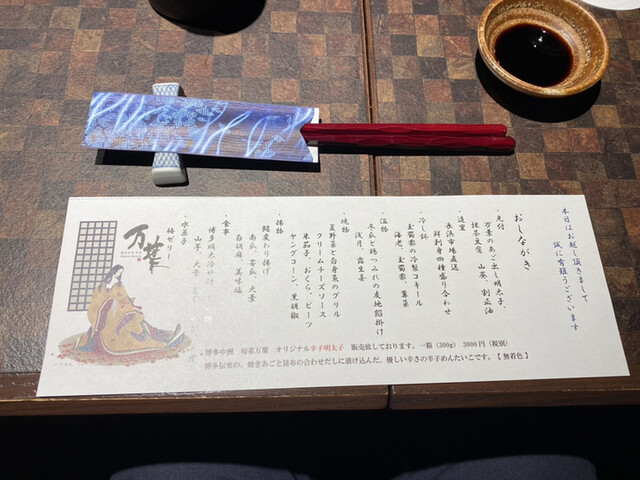 本日はお越し頂きまして
誠に有難うございます
おしながき
・先付
万葉のあご出し明太子、
抹茶豆腐、山葵、割正油
・造里
長浜市場直送
鮮刺身四種盛り合わせ
・冷し鉢
玉蜀黍の冷製コキール
海老、玉蜀黍、蓴菜
・温物
冬瓜と鶏つみれの麦地餡掛け
浅月、露生姜
・焼物
夏野菜と白身魚のグリル
クリームチーズソース
米茄子、おくら、ビーツ
ヤングコーン、黒胡椒
・揚物
鱧変わり揚げ
南瓜、苦瓜、大葉
白胡麻、美味塩
・食事
博多明太冷や汁
山芋、大葉
・水菓子
梅ゼリー
万葉
博多中洲 旬菜万葉 オリジナル辛子明太子 販売致しております。一箱（300g） 3000円（税別）
博多伝来の、焼きあごと昆布の合わせだしに漬け込んだ、優しい辛さの辛子めんたいこです。【無着色】